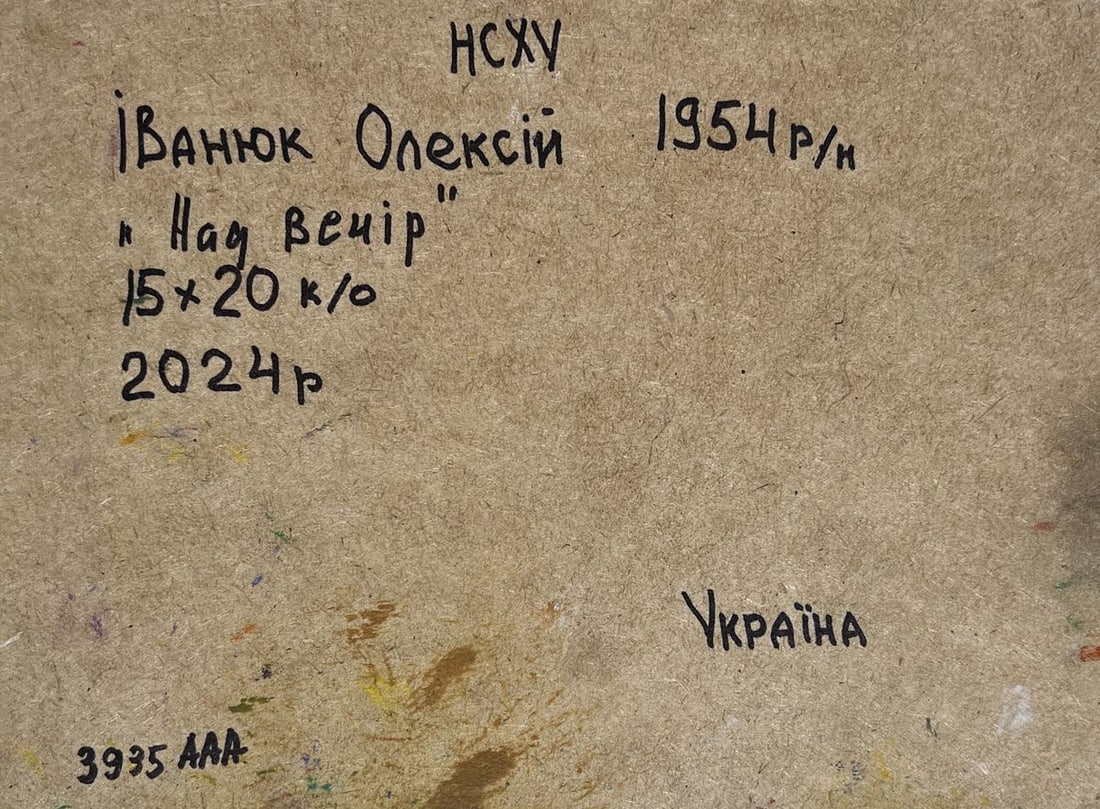 НСХУ
Іванюк Олексій 1954 р/н
„Над вечір"
15×20 к/о
2024р
Україна
3935 ААА